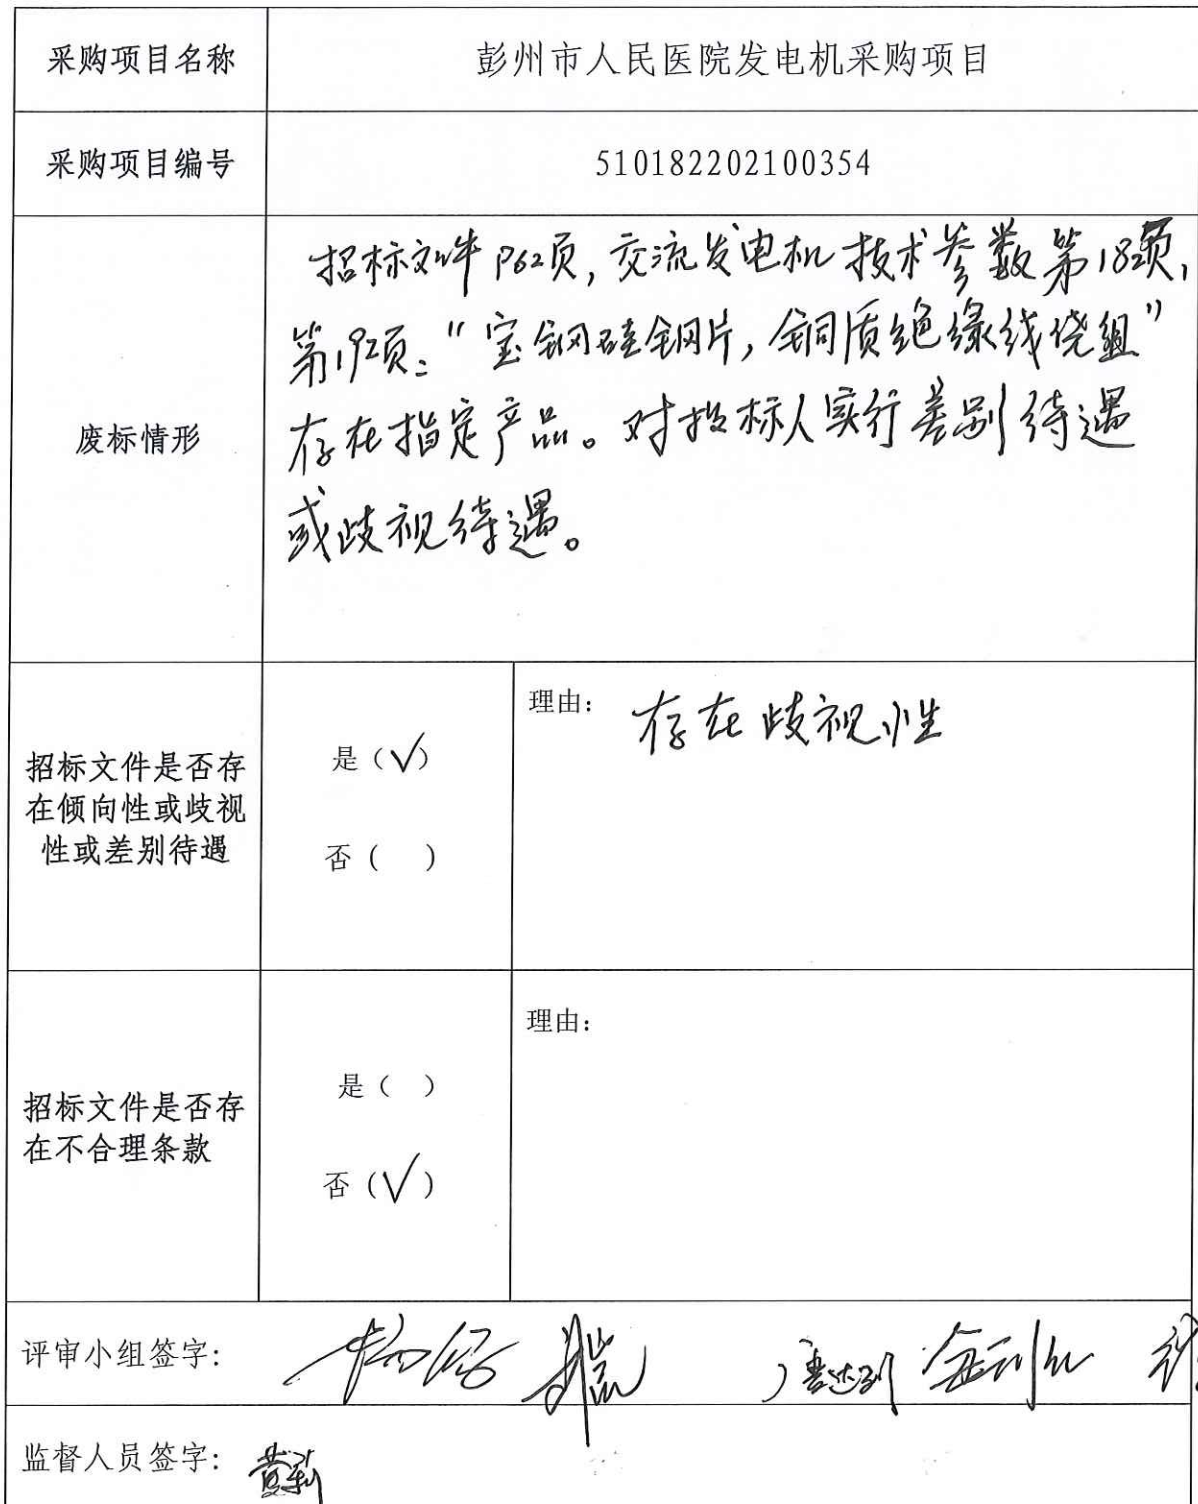 采购项目名称
彭州市人民医院发电机采购项目
采购项目编号
510182202100354
废标情形
招标文件P62页,交流发电机技术参数第18项,
第19项:"宝钢硅钢片,铜质绝缘线绕组"
存在指定产品。对投标人实行差别待遇
或歧视待遇。
招标文件是否存
在倾向性或歧视
性或差别待遇
是(√)
否( )
理由: 存在歧视性
招标文件是否存
在不合理条款
是( )
否(√)
理由:
评审小组签字:
监督人员签字: 黄莉